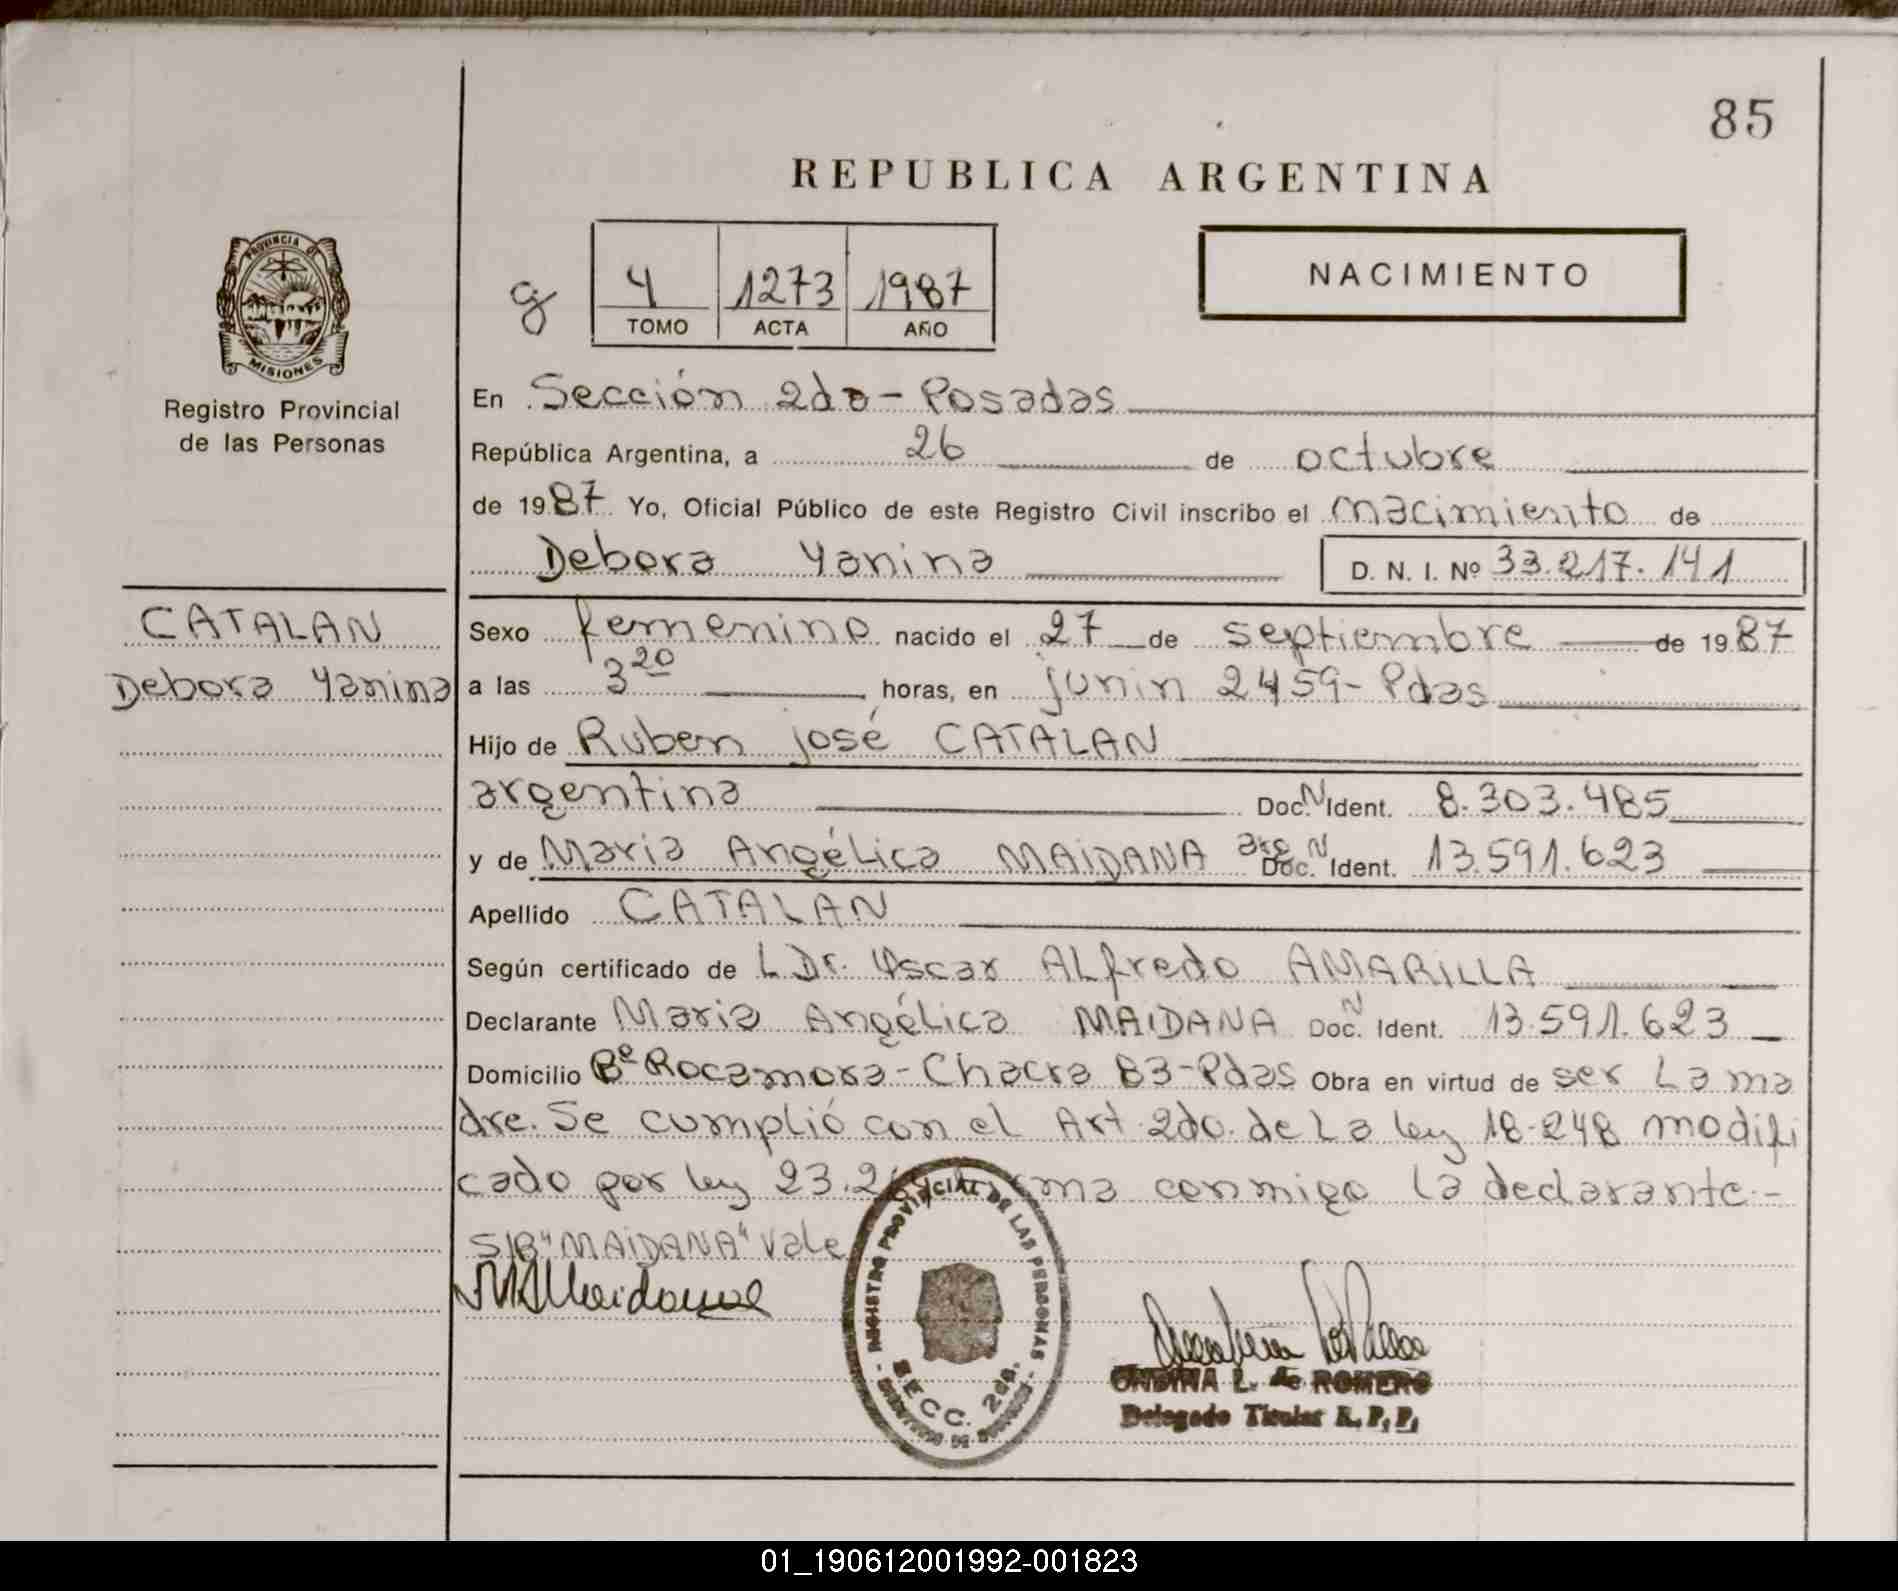 85
REPUBLICA ARGENTINA
PROVINCIA DE
MISIONES
Registro Provincial
de las Personas
g
4 1273 1987
TOMO ACTA AÑO
NACIMIENTO
En Sección 2da - Posadas
República Argentina, a 26 de octubre
de 1987 Yo, Oficial Público de este Registro Civil inscribo el nacimiento de
Debora Yanina D. N. I. Nº 33.217.141
CATALAN
Debora Yanina
Sexo femenino nacido el 27 de septiembre de 1987
a las 3 20 horas, en junin 2459 - Pdas
Hijo de Ruben josé CATALAN
argentina Doc. N Ident. 8.303.485
y de Maria Angélica MAIDANA arg Doc. N Ident. 13.591.623
Apellido CATALAN
Según certificado de L Dr. Oscar ALfredo AMARILLA
Declarante Maria Angélica MAIDANA Doc. N Ident. 13.591.623
Domicilio Bº Rocamora - Chacra 83 - Pdas Obra en virtud de ser La ma
dre. Se cumplió con el Art. 2do. de La ley 18.248 modifi
cado por ley 23.2 conmigo la declarante.-
S/B "MAIDANA" vale
MAMaidana
REGISTRO PROVINCIAL DE LAS PERSONAS
SECC. 2da.
ONDINA L. de ROMERO
Delegado Titular R. P. P.
01_190612001992-001823